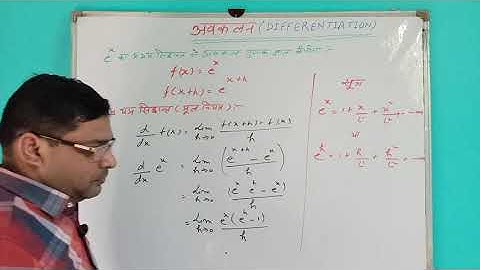 अवकलन (DIFFERENTIATION)
eˣ का प्रथम सिद्धान्त से अवकल गुणांक ज्ञात कीजिए :-
f(x) = eˣ
f(x+h) = eˣ⁺ʰ
d/dx f(x) = Lim h→0 f(x+h) - f(x) / h
d/dx eˣ = Lim h→0 (eˣ⁺ʰ - eˣ) / h
= Lim h→0 (eˣ eʰ - eˣ) / h
= Lim h→0 eˣ(eʰ - 1) / h
सूत्र
eˣ = 1 + x/L1 + x²/L2 + ----
eʰ = 1 + h/L1 + h²/L2 + ----